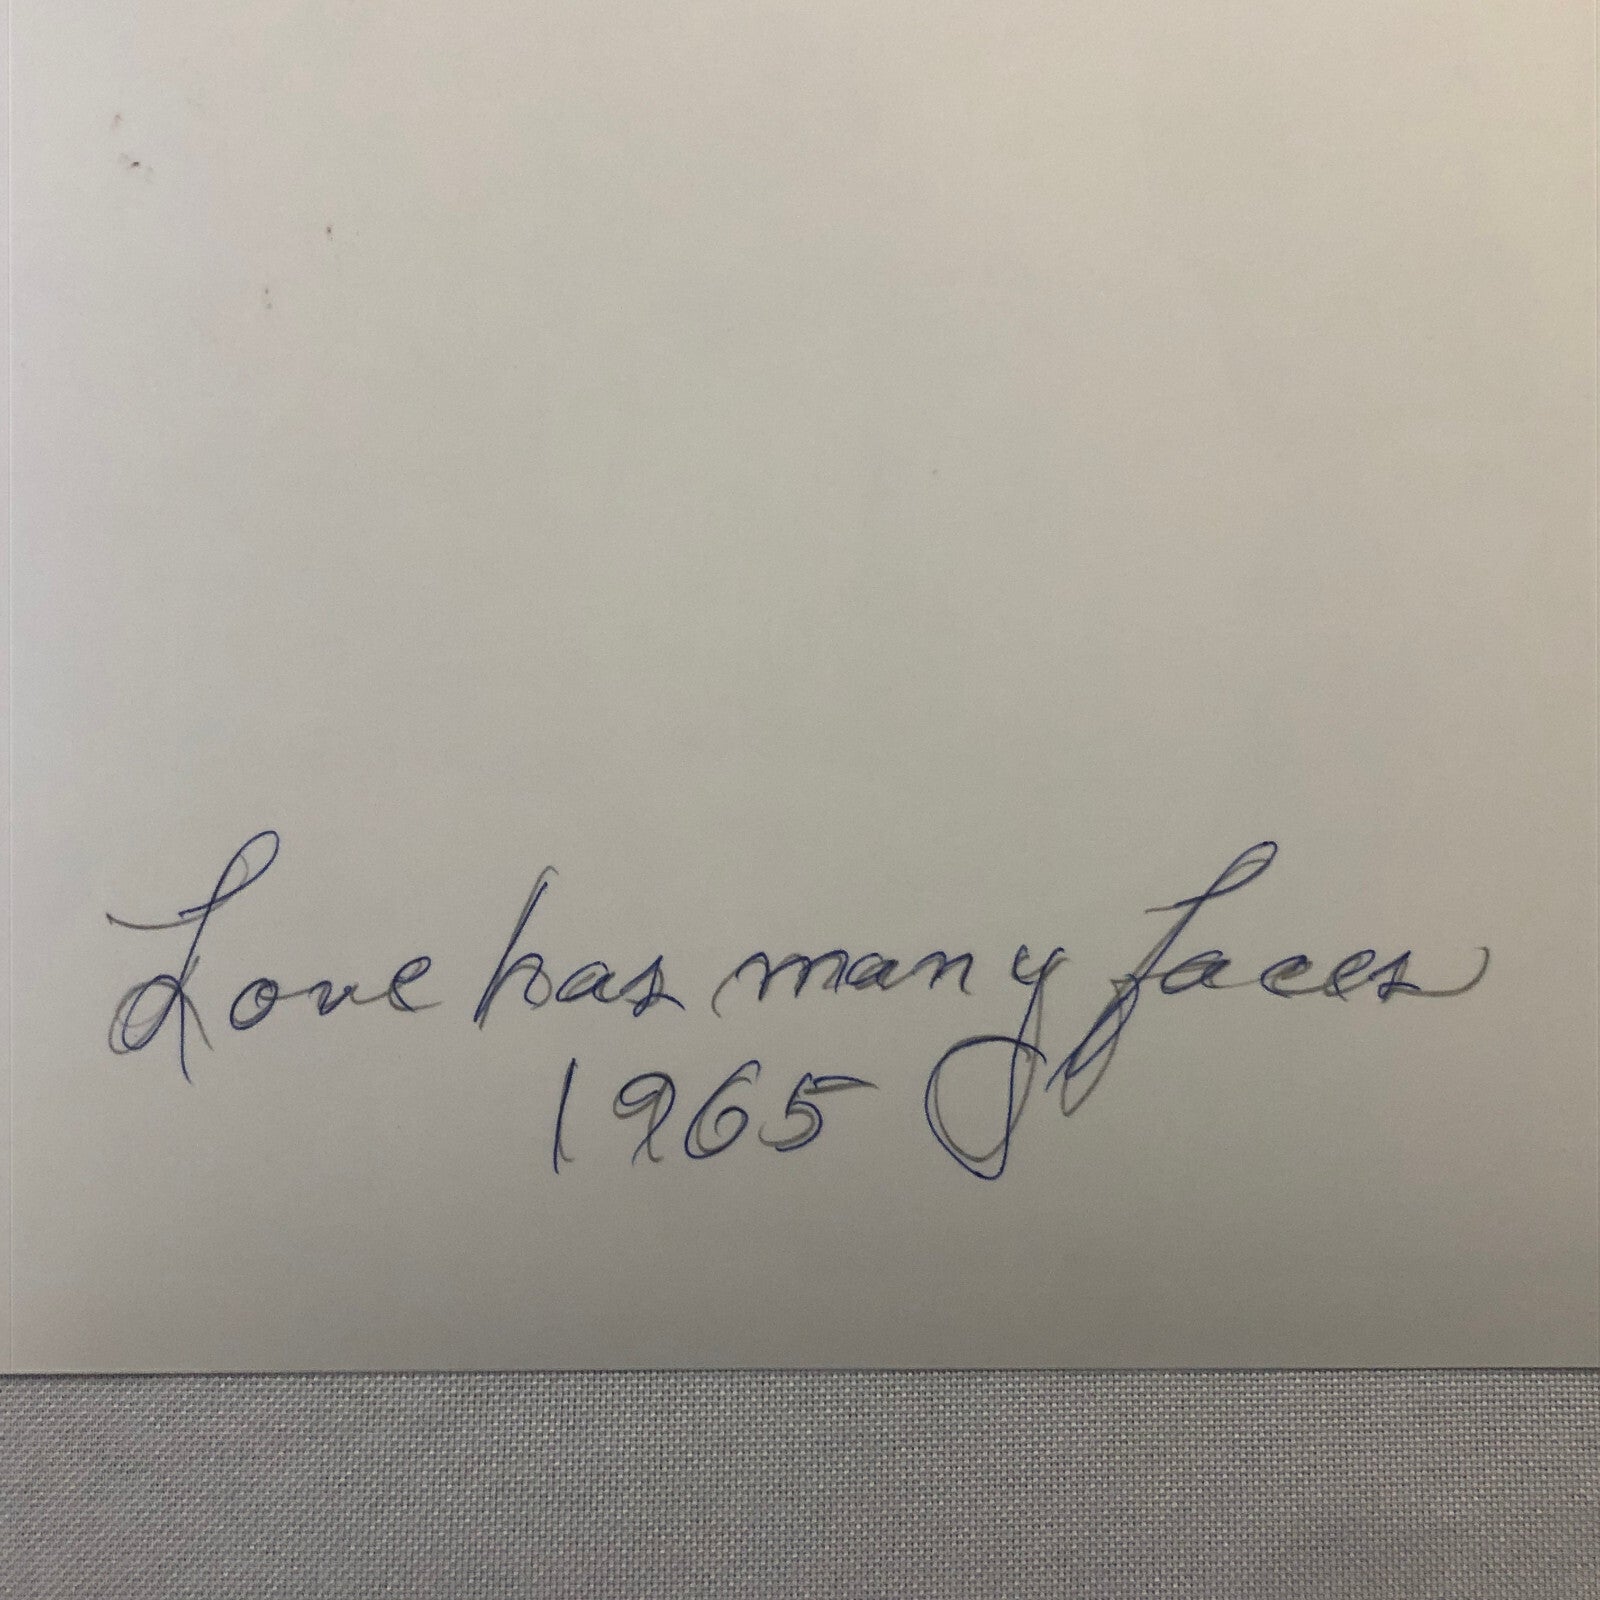 Love has many faces
1965